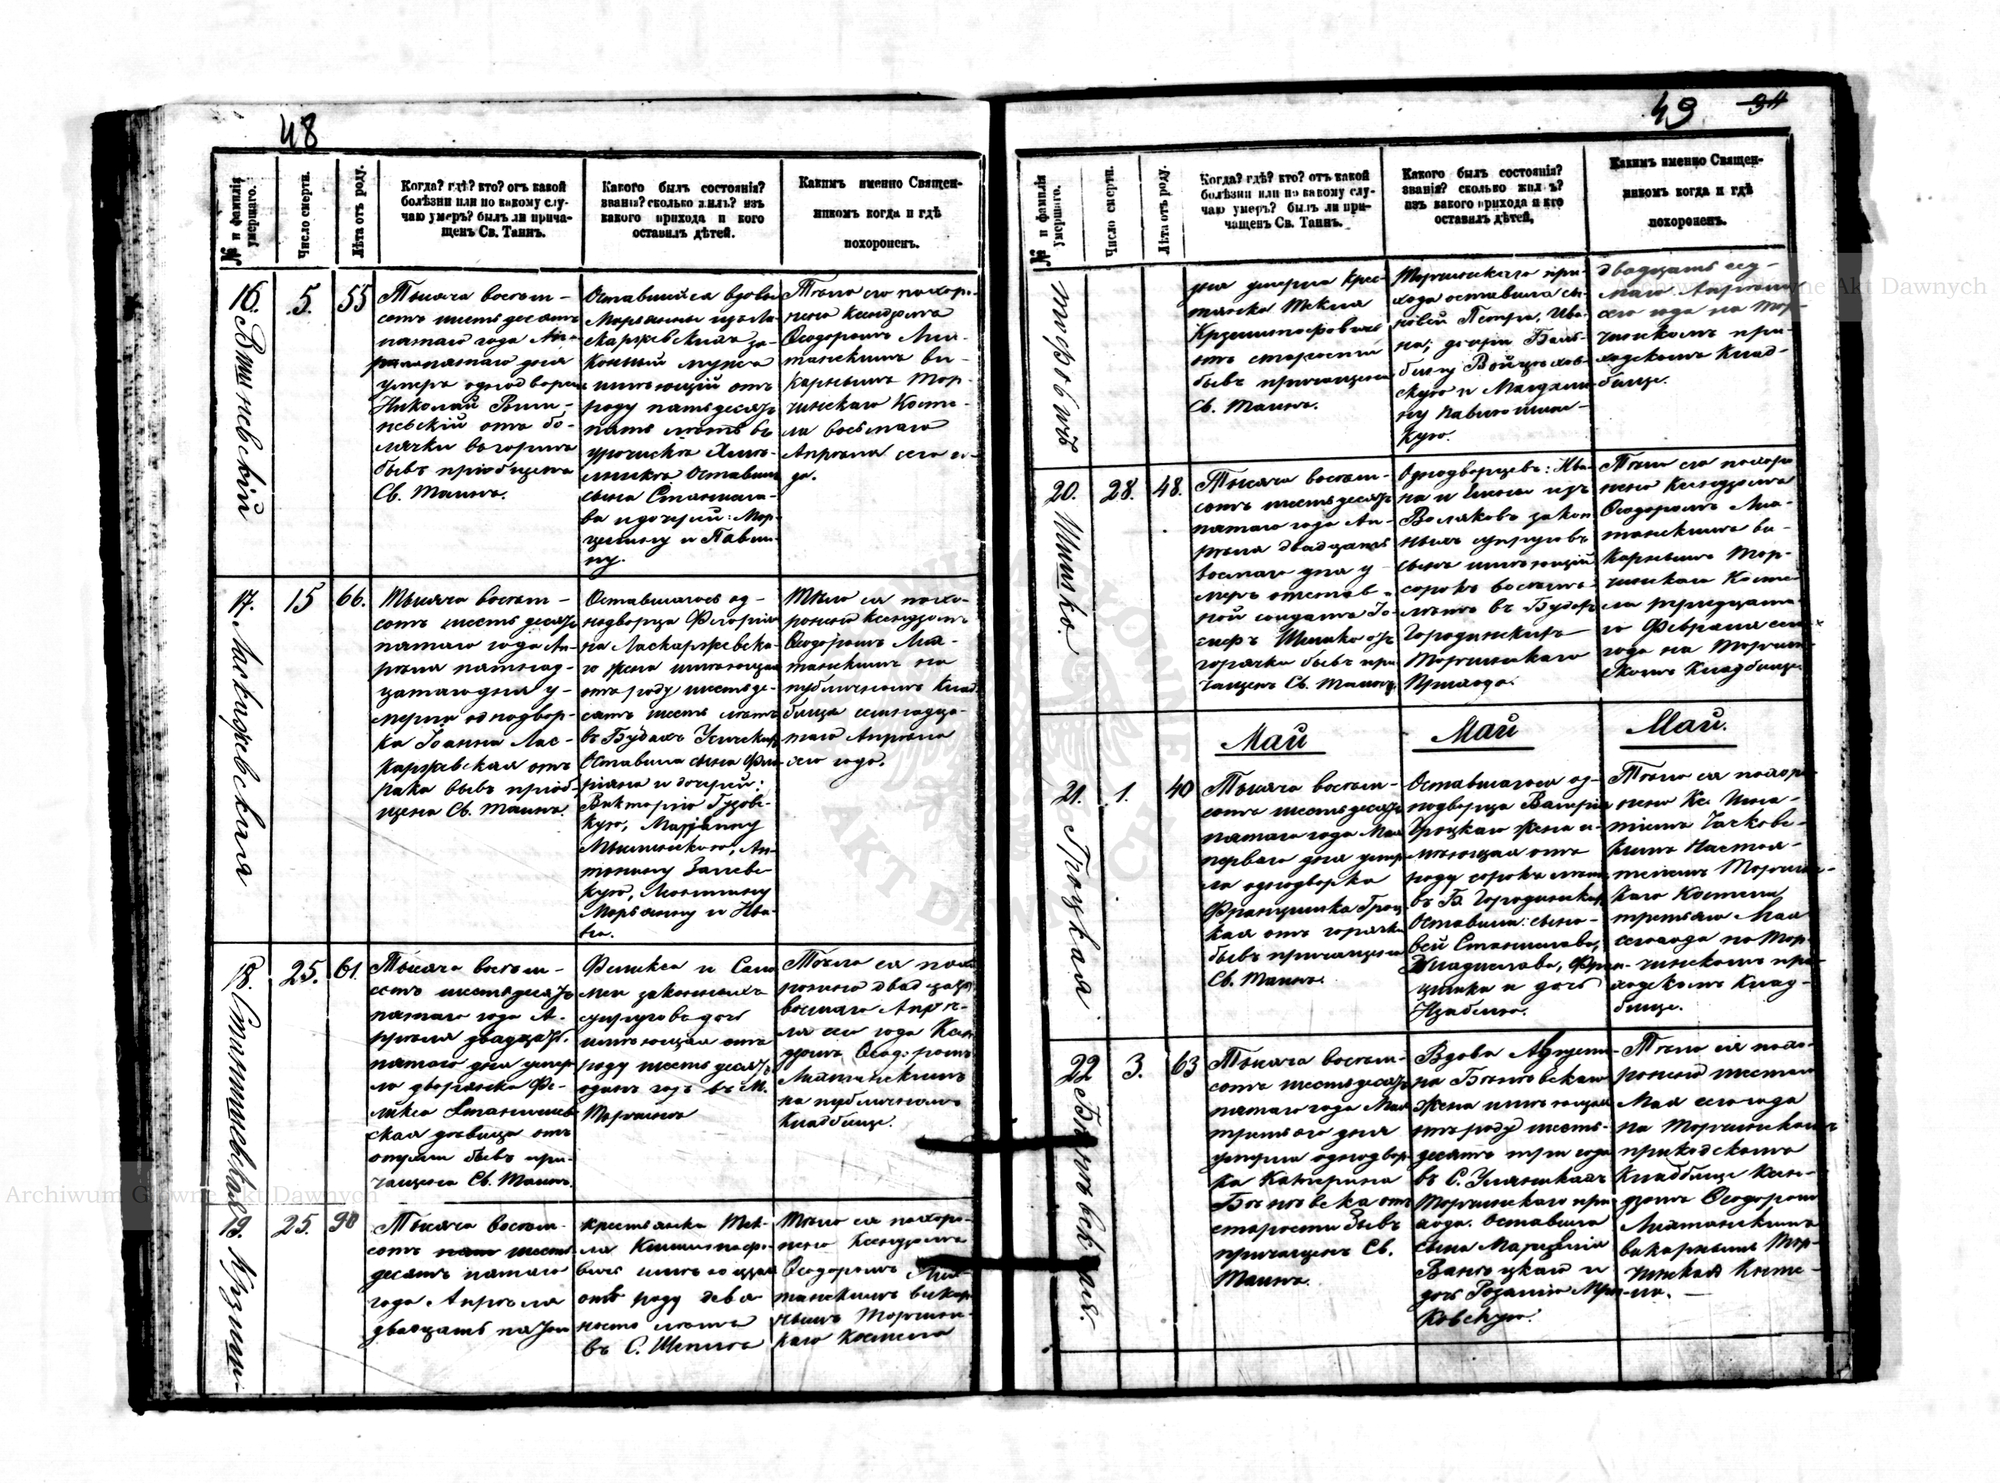 48
№ и фамилія умершаго.
Число смерти.
Лѣта отъ роду.
Когда? гдѣ? кто? отъ какой
болѣзни или по какому слу-
чаю умеръ? былъ ли прича-
щенъ Св. Таинъ.
Какого былъ состоянія?
званія? сколько жилъ? изъ
какого прихода и кого
оставилъ дѣтей.
Какимъ именно Священ-
никомъ когда и гдѣ
похороненъ.
16. Вишневскій
5.
55
Тысяча восем-
сотъ шестьдесятъ
пятаго года Ап-
рѣля пятаго дня
умеръ однодворецъ
Николай Виш-
невскій отъ бо-
лячки въ горлѣ
бывъ пріобщенъ
Св. Таинъ.
Оставшійся вдовы
Марьянны изъ Ла-
скаржевскихъ за-
конный мужъ
имѣющій отъ
роду пятьдесятъ
пять лѣтъ въ
урочискѣ Хмѣ-
линкѣ Оставилъ
сына Станисла-
ва и дочерей: Мар-
целину и Павли-
ну.
Тѣло его похоро-
нено Ксендзомъ
Ѳеодоромъ Лип-
танскимъ Ви-
карнымъ Тор-
чинскаго Косте-
ла восьмаго
Апрѣля сего го-
да.
17. Ласкаржевская
15
66.
Тысяча восем-
сотъ шестьдесятъ
пятаго года Ап-
рѣля пятнад-
цатаго дня у-
мерла однодвор-
ка Іоанна Лас-
каржевская отъ
рака бывъ пріоб-
щена Св. Таинъ.
Оставшагося од-
нодворца Флоріа-
на Ласкаржевска-
го жена имѣющая
отъ роду шестьде-
сятъ шесть лѣтъ
въ Будахъ Усичскихъ
Оставила сына Фло-
ріяна и дочерей:
Викторію Гудов-
скую, Маріанну
Мышинскую, Ан-
тонину Залев-
скую,
Марьянну и Ева-
Тѣло ея похо-
ронено Ксендзомъ
Ѳеодоромъ Лип-
танскимъ на
публичномъ Клад-
бищѣ семнадца-
таго Апрѣля
сего года.
18. Станишевская
25.
61.
Тысяча восем-
сотъ шестьдесятъ
пятаго года А-
прѣля двадцать
пятаго дня умер-
ла дворянка Фе-
ликса Станишев-
ская дѣвица отъ
опухли бывъ при-
чащена Св. Таинъ.
Феликса и Сало-
меи законныхъ
супруговъ дочь
имѣющая отъ
роду шестьдесятъ
одинъ годъ въ М.
Торчинѣ
Тѣло ея похо-
ронено двадцать
восьмаго Апрѣ-
ля сего года Ксен-
дзомъ Ѳеодоромъ
Липтанскимъ
на публичномъ
Кладбищѣ.
19. Крзыш-
25.
90
Тысяча восем-
сотъ шесть
десятъ пятаго
года Апрѣля
двадцать пятаго
крестьянка Тек-
ля
вичъ имѣющая
отъ роду девя
носто лѣтъ
въ С. Шепель
Тѣло ея похоро-
нено Ксендзомъ
Ѳеодоромъ Лип-
танскимъ викар-
нымъ Торчин-
скаго Костела
49
34
№ и фамилія умершаго.
Число смерти.
Лѣта отъ роду.
Когда? гдѣ? кто? отъ какой
болѣзни или по какому слу-
чаю умеръ? былъ ли при-
чащенъ Св. Таинъ.
Какого былъ состоянія?
званія? сколько жилъ?
изъ какого прихода и кого
оставилъ дѣтей,
Какимъ именно Священ-
никомъ когда и гдѣ
похороненъ.
тофовичъ
дня умерла крес-
тьянка Текля
Крзыштофовичъ
отъ старости
бывъ причащена
Св. Таинъ.
Торчинскаго при-
хода оставила сы-
новей Петра, Ива-
на, дочерей Баль-
бину Войцѣхов-
скую и Магдали-
ну Павлюшин-
скую.
двадцать сед-
маго Апрѣля
сего года на Тор-
чинскомъ при-
ходскомъ Клад-
бищѣ.
20. Шишко.
28.
48.
Тысяча восем-
сотъ шестьдесятъ
пятаго года Ап-
рѣля двадцать
восмаго дня у-
меръ отстав-
ной солдатъ Іо-
сифъ Шишко отъ
горячки бывъ при-
чащенъ Св. Таинъ.
Однодворцевъ: Ива-
на и Елены изъ
Воляковъ закон-
ныхъ супруговъ
сынъ имѣющій
сорокъ восемь
лѣтъ въ Будахъ
Городинскихъ
Торчинскаго
Прихода.
Тѣло его похоро
нено Ксендзомъ
Ѳеодоромъ Лип-
танскимъ ви-
карнымъ Тор-
чинскаго Косте-
ла тридцата-
го Февраля сего
года на Торчин-
скомъ Кладбищѣ.
Май
Май
Май.
21. Гроцкая
1.
40
Тысяча восем-
сотъ шестьдесятъ
пятаго года Мая
перваго дня умер-
ла однодворка
Францишка Гроц-
кая отъ горячки
бывъ причащена
Св. Таинъ.
Оставшагося од-
нодворца Валеріа
Гроцкаго жена и-
мѣющая отъ
роду сорокъ лѣтъ
въ Б. Городинскихъ
Оставила: сыно-
вей Станислава,
Владислава, Фран-
цишка и дочь
Изабеллу.
Тѣло ея похоро-
нено Кс. Игна-
тіемъ Чачков-
скимъ Настоя-
телемъ Торчинс-
каго Костела
третьяго Мая
сего года на Тор-
чинскомъ при-
ходскомъ Клад-
бищѣ.
22
3.
63
Тысяча восем-
сотъ шестьдесятъ
пятаго года Мая
третьяго дня
умерла однодвор-
ка Катерина
отъ
старости бывъ
причащена Св.
Таинъ.
Вдова Августи-
на
жена имѣющая
отъ роду шесть-
десятъ три года
въ С. Усичкахъ
Торчинскаго при
хода. Оставила
сына
и
дочь Розалію
Тѣло ея похо-
ронено шестаго
Мая сего года
на Торчинскомъ
приходскомъ
Кладбищѣ Ксен-
дзомъ Ѳеодоромъ
Липтанскимъ
викарнымъ Тор-
чинскаго Косте-
ла.
Archiwum Główne Akt Dawnych
Archiwum Główne Akt Dawnych